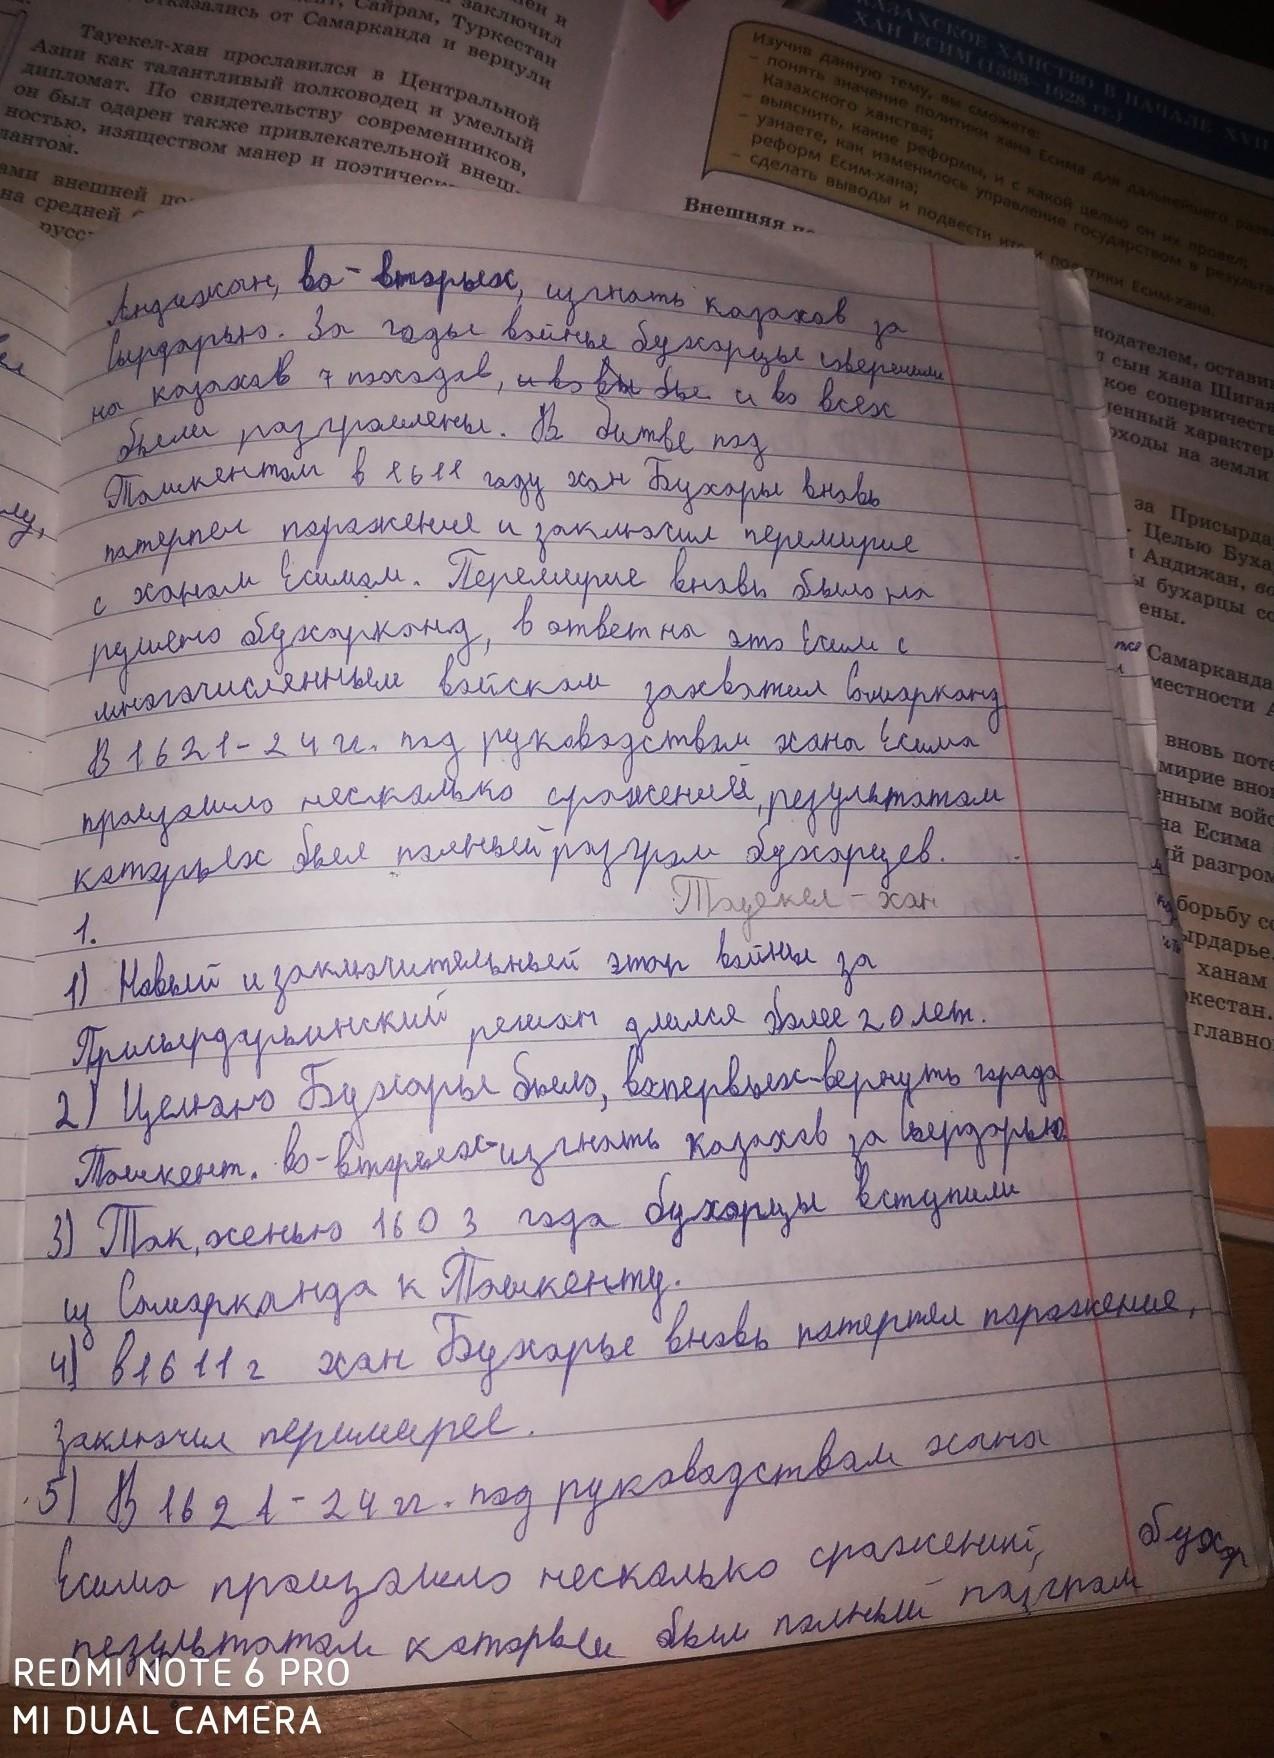 заключил
Сайрам, Туркестан
отказались от Самарканда и вернули
Тауекел-хан прославился в Центральной
Азии как талантливый полководец и умелый
дипломат. По свидетельству современников,
он был одарен также привлекательной внеш-
ностью, изяществом манер и поэтическ
лантом.
ами внешней по
на средней
русс
КАЗАХСКОЕ ХАНСТВО В НАЧАЛЕ XVII
ХАН ЕСИМ (1598–1628 гг.)
Изучив данную тему, вы сможете:
– понять значение политики хана Есима для дальнейшего разви
Казахского ханства;
– выяснить, какие реформы, и с какой целью он их провел;
– узнаете, как изменилось управление государством в результа
реформ Есим-хана;
– сделать выводы и подвести итоги политики Есим-хана.
Внешняя по
Андижан, во-вторых, изгнать казахов за
Сырдарью. За годы войны бухарцы совершили
на казахов 7 походов, и во вы бы и во всех
были разгромлены. В битве под
Ташкентом в 1611 году хан Бухары вновь
потерпел поражение и заключил перемирие
с ханом Есимом. Перемирие вновь было на
рушено бухарканд, в ответ на это Есим с
многочисленным войском захватил Самарканд
В 1621-24 гг. под руководством хана Есима
произошло несколько сражений, результатом
которых был полный разгром бухарцев.
Тауекел-хан
1.
1) Новый и заключительный этап войны за
Присырдарьинский регион длился более 20 лет.
2) Целью Бухары было, вопервых-вернуть города
Ташкент. Во-вторых-изгнать казахов за Сырдарью
3) Так, осенью 1603 года бухарцы вступили
из Самарканда к Ташкенту.
4) в 1611 г хан Бухары вновь потерпел поражение,
заключил перимирее.
5) В 1621-24 гг. под руководством хана
Есима произошло несколько сражений,
результатом которых был полный разгром бухар
нодателем, остави
сын хана Шигая
кое соперничеств
енный характер
оходы на земли
за Присырда
Целью Буха
Андижан, во
ы бухарцы со
ены.
Самарканда
местности А
вновь поте
мирие внов
нным войс
на Есима
ий разгром
борьбу со
ырдарье.
ханам
кестан.
главно
REDMI NOTE 6 PRO
MI DUAL CAMERA